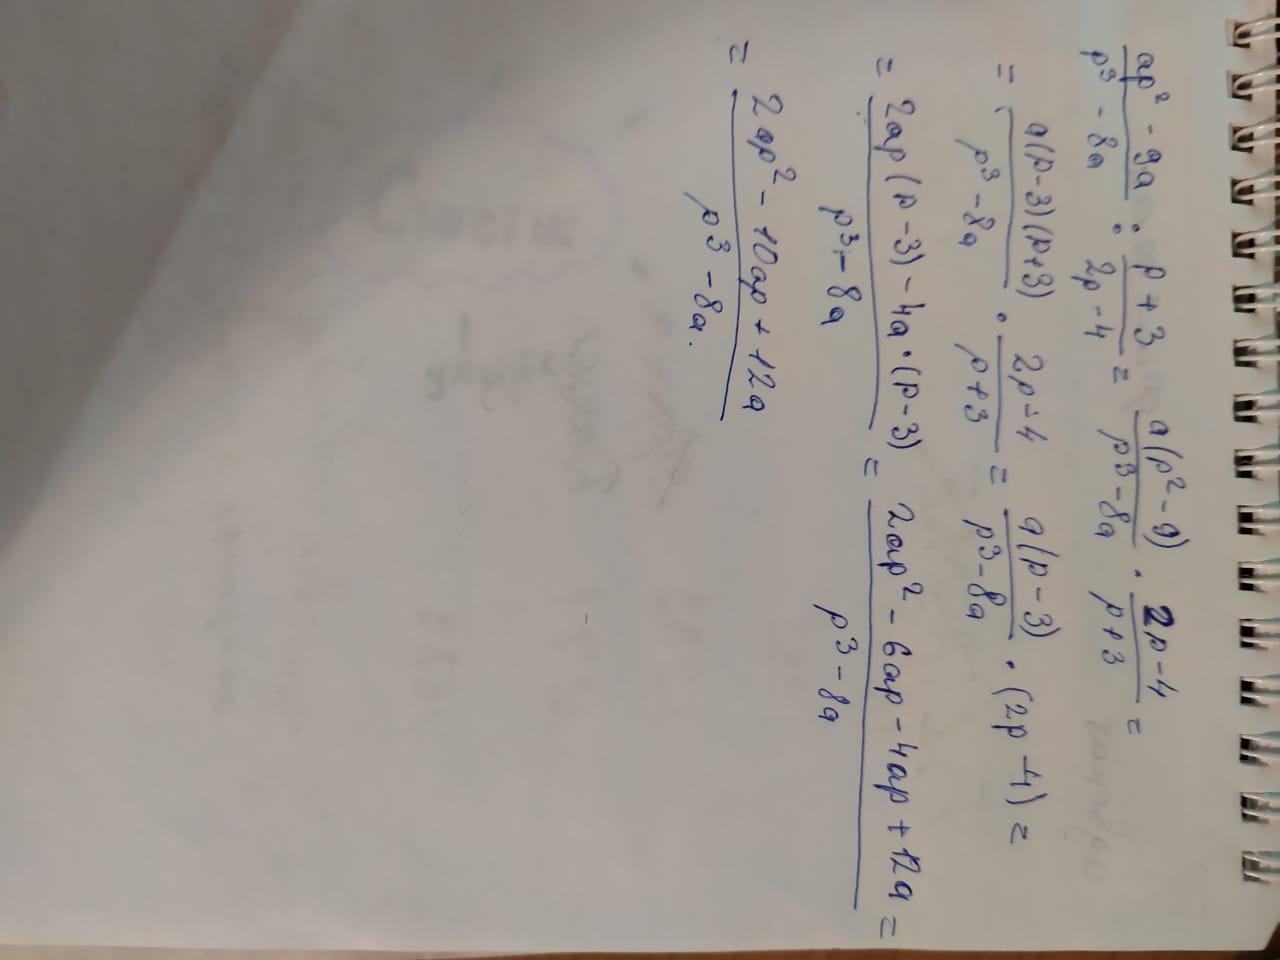 ap² - 9a / p³ - 8a : p + 3 / 2p - 4 = a(p² - 9) / p³ - 8a · 2p - 4 / p + 3 =
= a(p-3)(p+3) / p³ - 8a · 2p - 4 / p + 3 = a(p - 3) / p³ - 8a · (2p - 4) =
= 2ap(p - 3) - 4a · (p - 3) / p³ - 8a = 2ap² - 6ap - 4ap + 12a / p³ - 8a =
= 2ap² - 10ap + 12a / p³ - 8a.